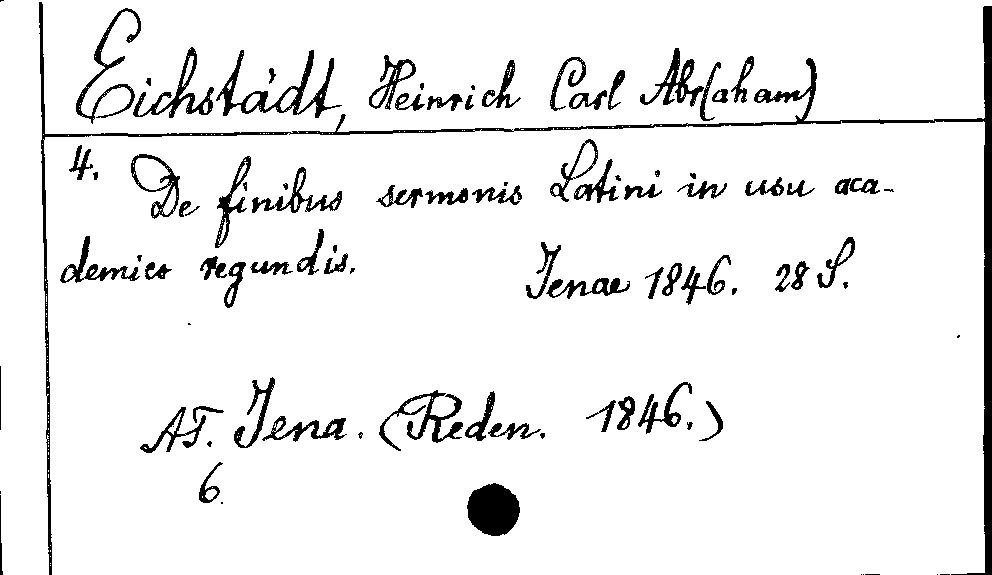 Eichstädt, Heinrich Carl Abr(aham)
4. De finibus sermonis Latini in usu aca-
demico regundis.
Jenae 1846. 28 S.
AT. Jena. (Reden. 1846.)
6